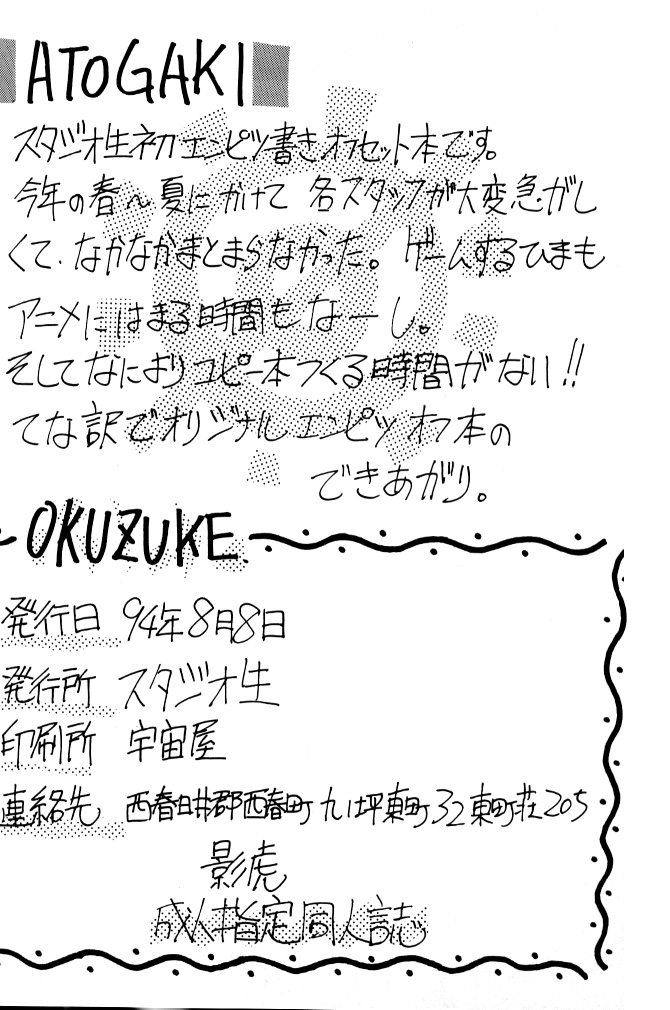 ATOGAKI
スタジオ生初エンピツ書きオフセット本です。
今年の春～夏にかけて 各スタッフが大変急がし
くて、なかなかまとまらなかった。ゲームするひまも
アニメにはまる時間もなーし。
そしてなによりコピー本つくる時間がない!!
てな訳でオリジナルエンピツオフ本の
できあがり。
OKUZUKE
発行日 94年8月8日
発行所 スタジオ生
印刷所 宇宙屋
連絡先 西春日井郡西春町九ノ坪東町32東町荘205
影虎
成人指定同人誌